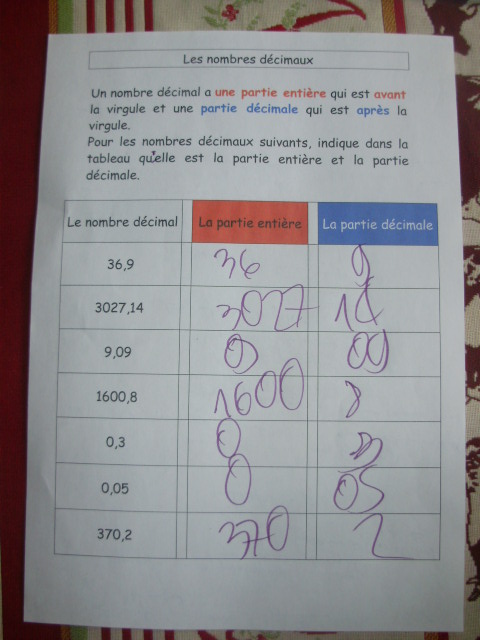 Les nombres décimaux
Un nombre décimal a une partie entière qui est avant
la virgule et une partie décimale qui est après la
virgule.
Pour les nombres décimaux suivants, indique dans la
tableau quelle est la partie entière et la partie
décimale.
Le nombre décimal La partie entière La partie décimale
36,9 36 9
3027,14 3027 14
9,09 9 09
1600,8 1600 8
0,3 0 3
0,05 0 05
370,2 370 2